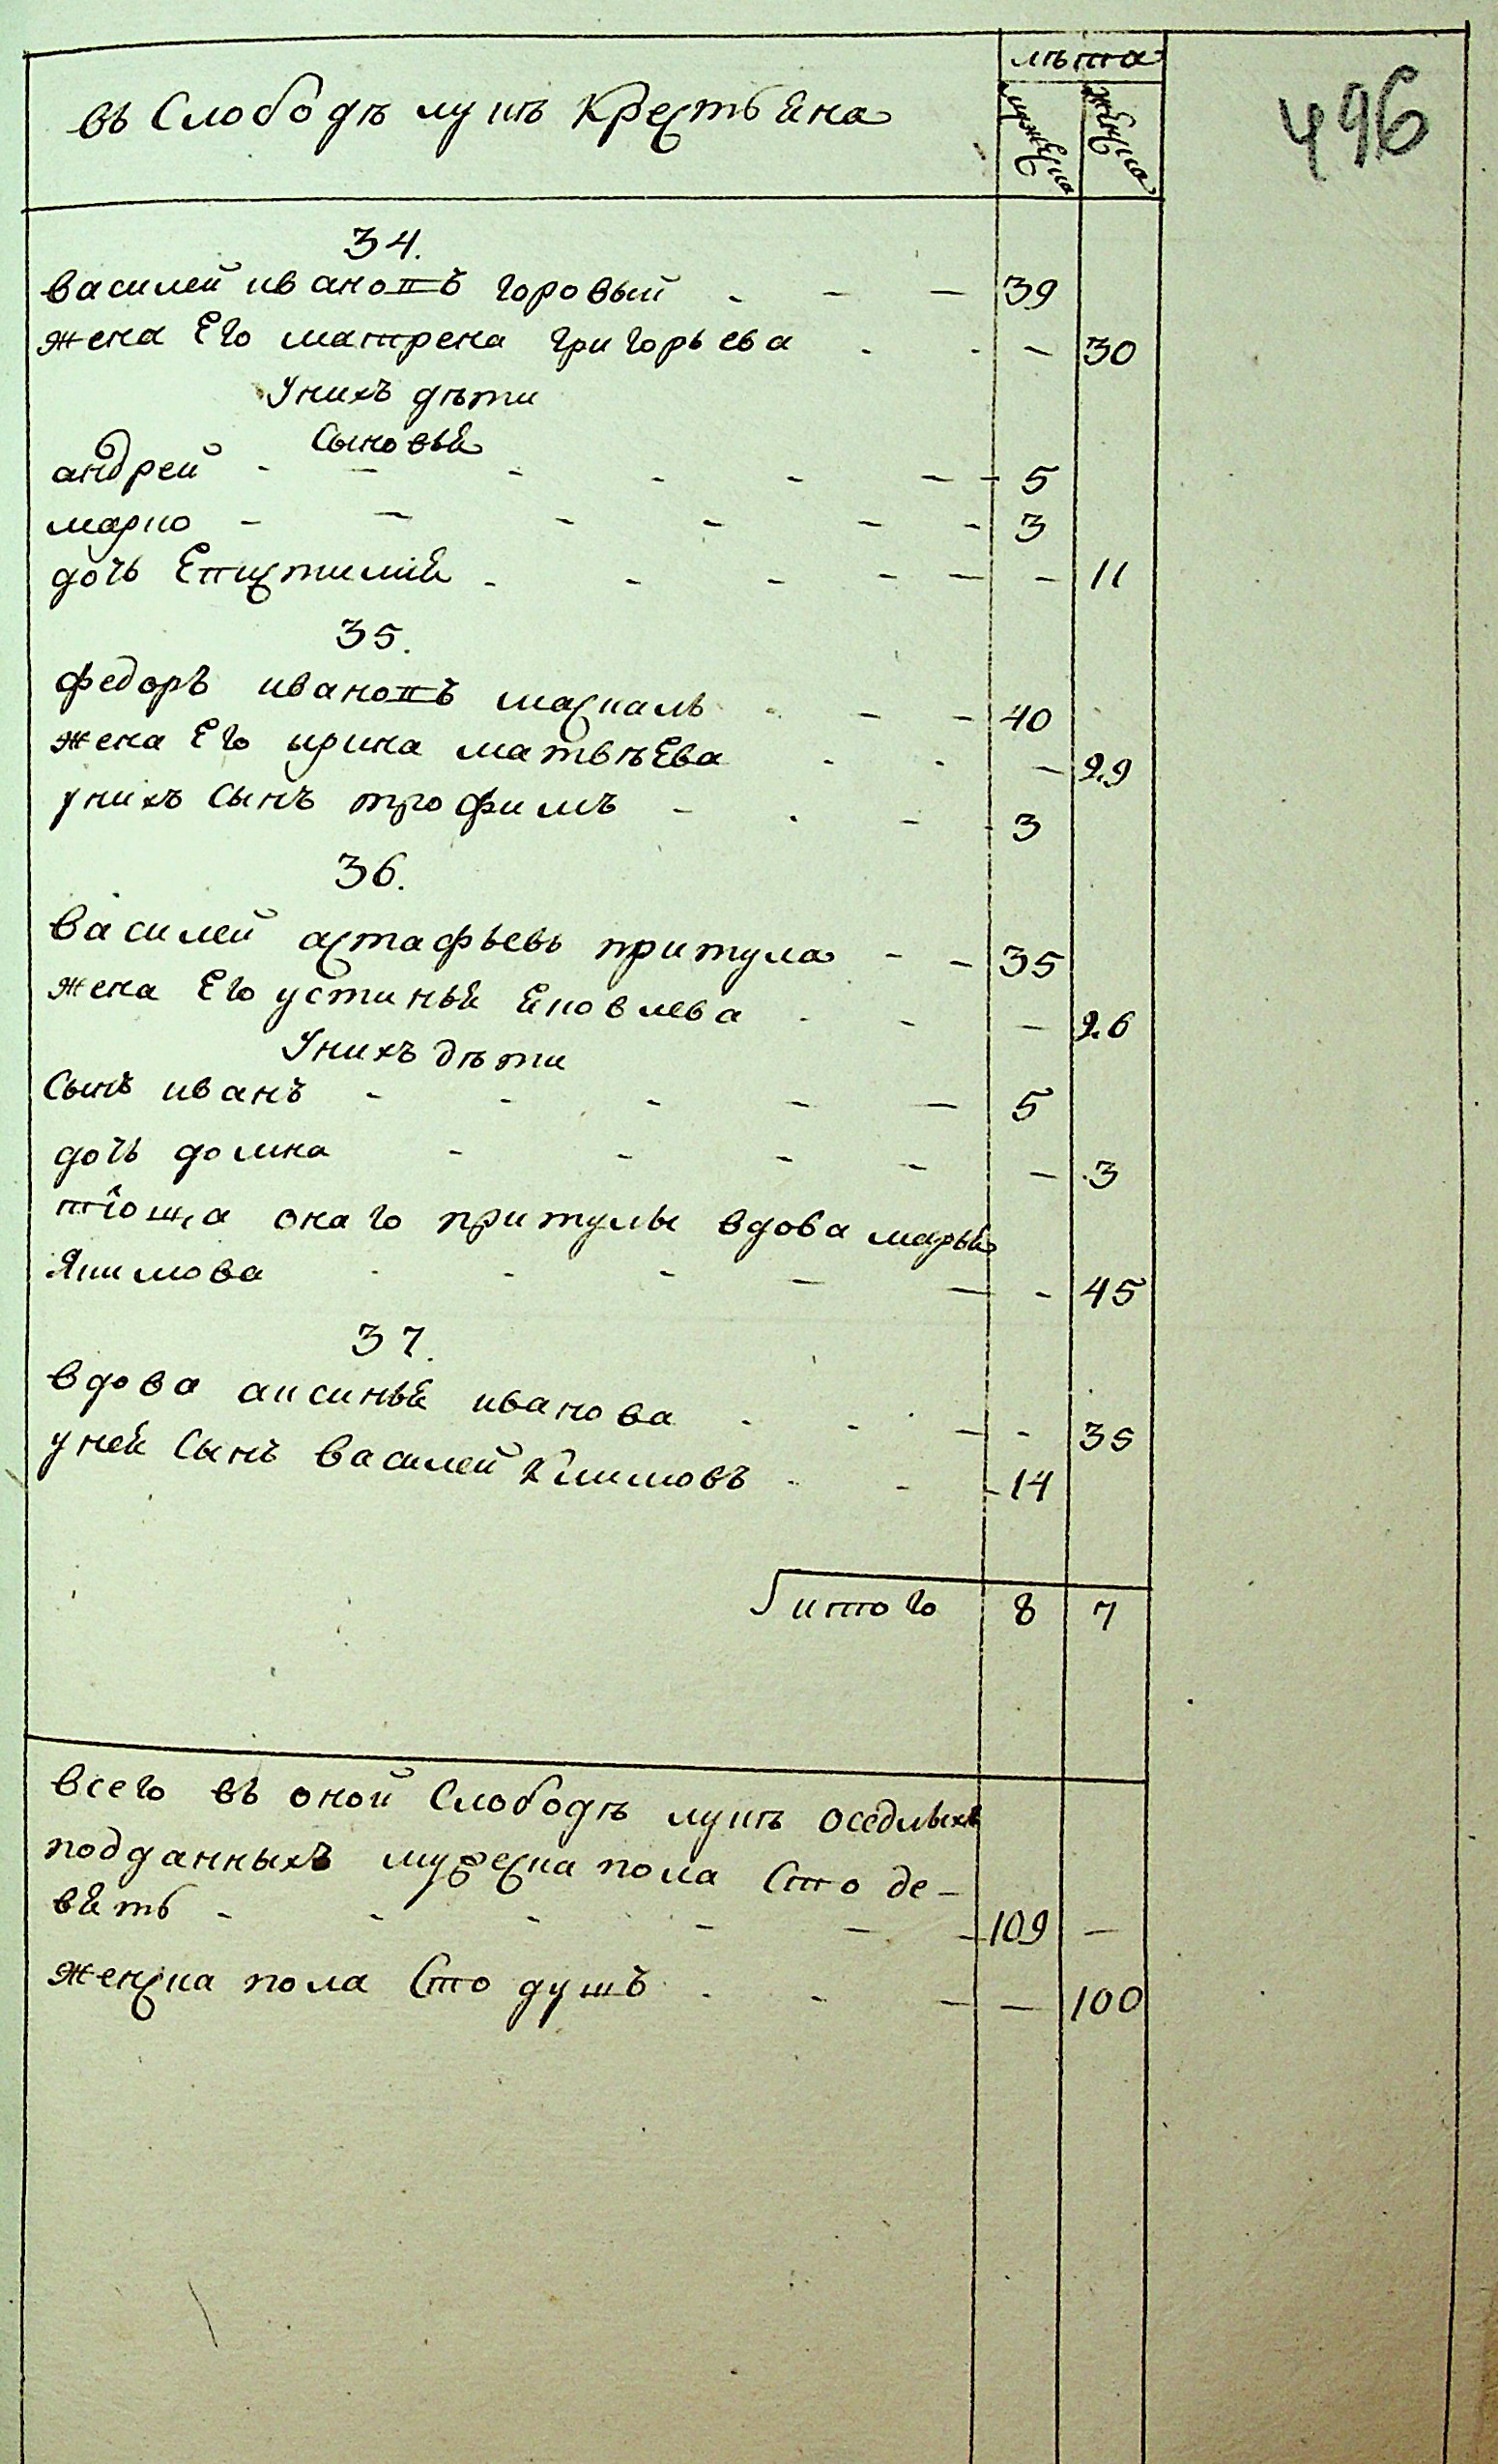 лѣта
въ Слободѣ лукѣ Крестьяна
мужеска женска
496
34.
василей ивановъ горовый - - - 39
жена Его матрена григорьева - - - 30
Унихъ дѣти
Сыновья
андрей - - - - - - 5
марко - - - - - - 3
дочь Епистимия - - - - - - 11
35.
федоръ ивановъ маскаль - - - 40
жена Его ирина матвѣЕва - - - 29
унихъ Сынъ трофимъ - - - - 3
36.
василей астафьевъ притула - - 35
жена Его устинья яковлева - - - 26
Унихъ дѣти
Сынъ иванъ - - - - - 5
дочь домна - - - - - 3
тіоща онаго притулы вдова марья
Якимова - - - - - - 45
37.
вдова аксинья иванова - - - - - 35
уней Сынъ василей Климовъ - - - 14
итого 8 7
всего въ оной Слободѣ лукѣ оседлыхъ
подданныхъ мужеска пола Сто де-
вять - - - - - - 109 -
женска пола Сто душъ - - - - 100